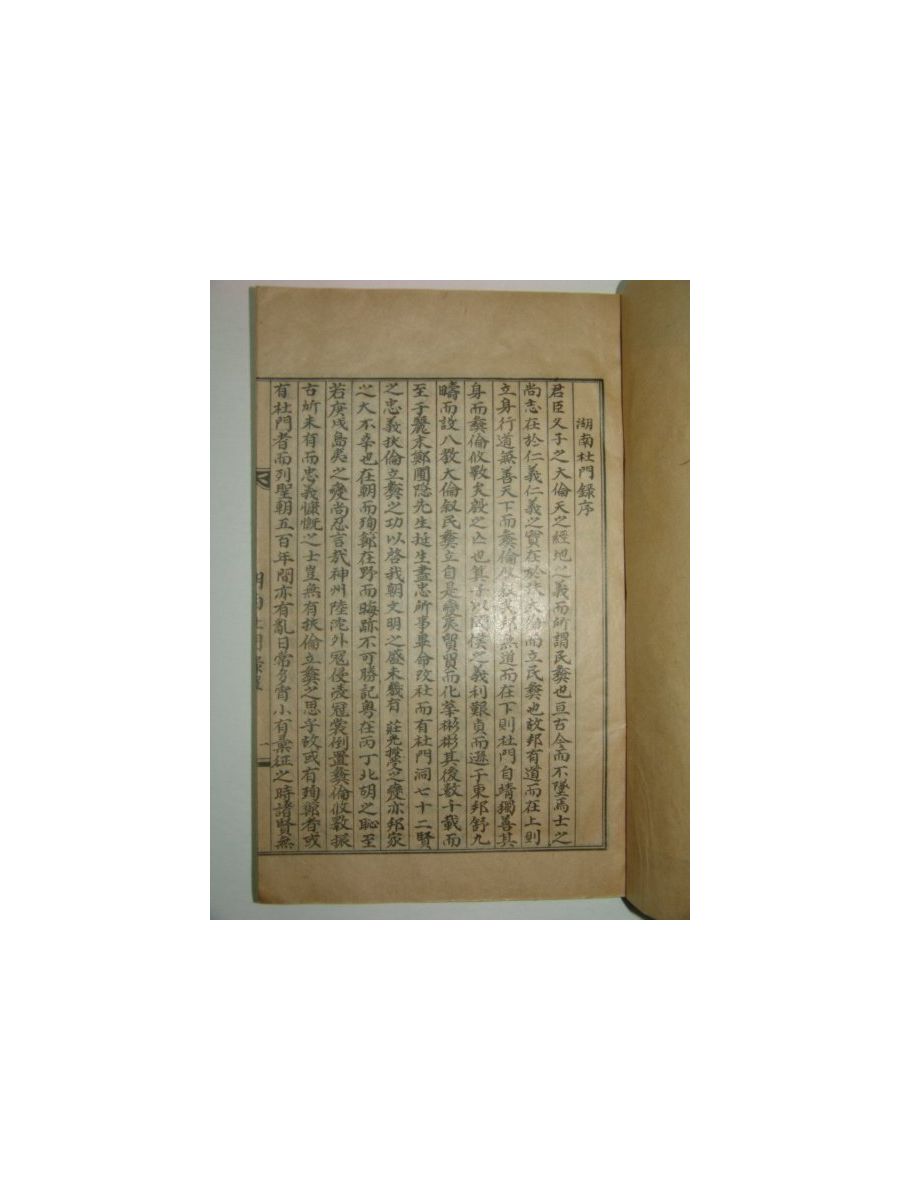 湖南杜門錄序
君臣父子之大倫天之經地之義而所謂民彝也亘古今而不墜焉士之
尚志在於仁義仁義之實在於扶大倫而立民彝也故邦有道而在上則
立身行道兼善天下而彝倫攸敘邦無道而在下則杜門自靖獨善其
身而彝倫攸斁矣殷之亡也箕子以罔僕之義利艱貞而遜于東邦舒九
疇而設八教大倫叙民彝立自是變夷貿貿而化華彬彬其後數千載而
至于麗末鄭圃隐先生挺生盡忠所事畢命改社而有杜門洞七十二賢
之忠義扶倫立彝之功以啓我朝文明之盛未幾有莊光之變亦邦家
之大不幸也在朝而殉節在野而晦跡不可勝記粤在丙丁北胡之恥至
若庚戌島夷之變尚忍言哉神州陸沈外冠侵凌冠裳倒置彝倫攸斁振
古所未有而忠義慷慨之士豈無有扶倫立彝之思乎故或有殉節者或
有杜門者而列聖朝五百年間亦有亂日常多宵小有彙征之時諸賢無
湖南杜門錄
一